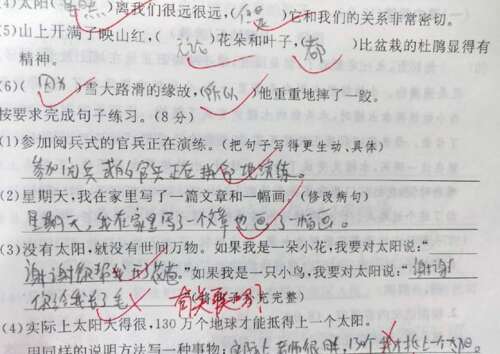 (4)太阳(虽然)离我们很远很远,(但是)它和我们的关系非常密切。
(5)山上开满了映山红,(无论)花朵和叶子,(都)比盆栽的杜鹃显得有
精神。
(6)(因为)雪大路滑的缘故,(所以)他重重地摔了一跤。
按要求完成句子练习。(8分)
(1)参加阅兵式的官兵正在演练。(把句子写得更生动、具体)
参加阅兵式的官兵正在 地演练。
(2)星期天,我在家里写了一篇文章和一幅画。(修改病句)
星期天,我在家里写了一个文章也画了一幅画。
(3)没有太阳,就没有世间万物。如果我是一朵小花,我要对太阳说:“
谢谢你帮我 ”如果我是一只小鸟,我要对太阳说:“谢谢
你给我 毛 有关联吗? 充完整)
(4)实际上太阳大得很,130万个地球才能抵得上一个太阳。
用同样的说明方法写一种事物:实际上 很 130个 才抵上一个太阳。